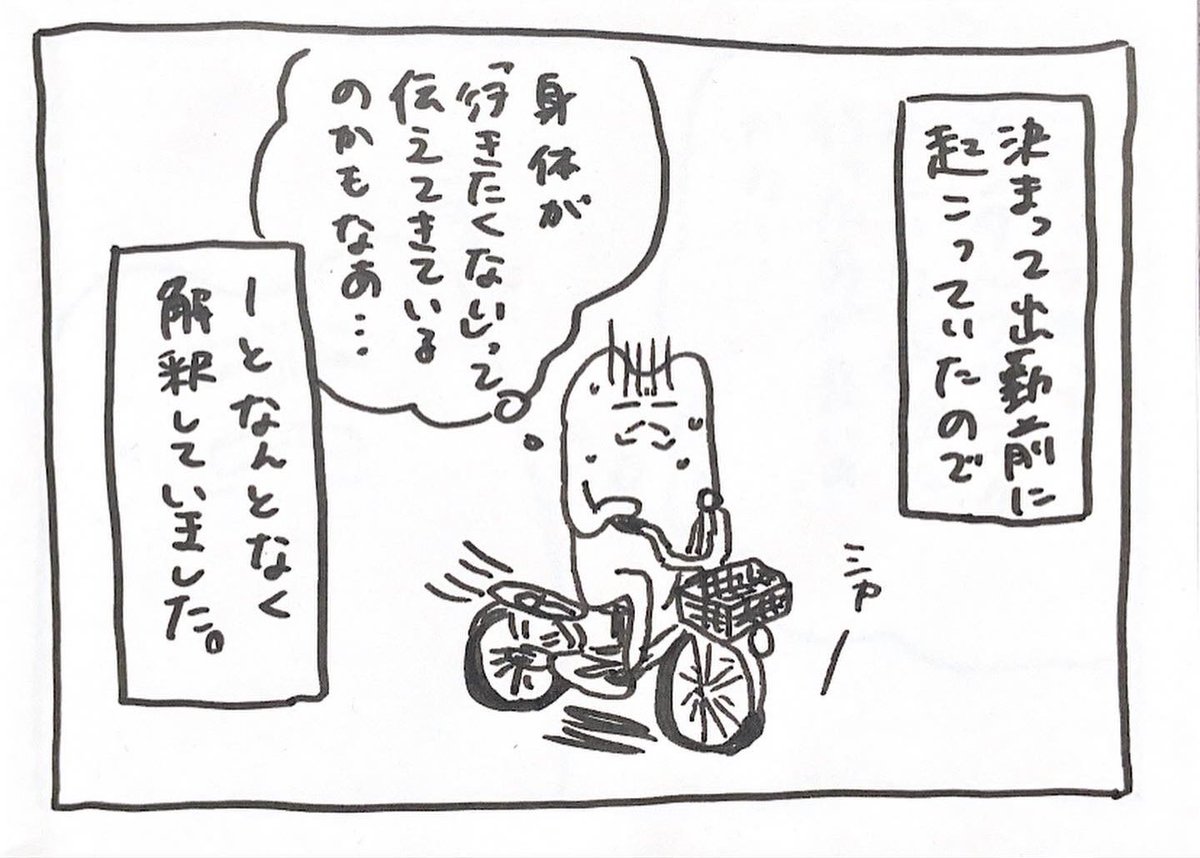 決まって出勤前に
起こっていたので
身体が
「行きたくない」って
伝えてきている
のかもなあ…
ミャー
ーとなんとなく
解釈していました。